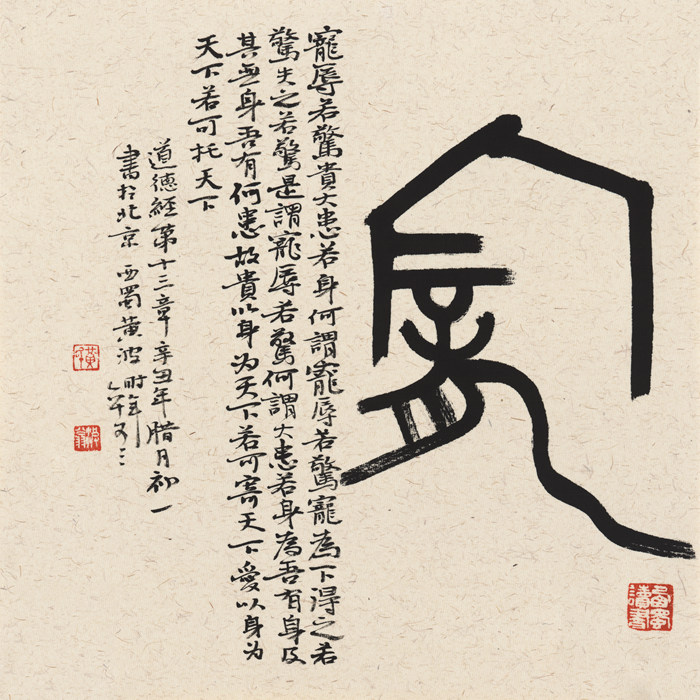 寵辱若驚貴大患若身何謂寵辱若驚寵為下得之若
驚失之若驚是謂寵辱若驚何謂大患若身為吾有身及
其無身吾有何患故貴以身为天下若可寄天下愛以身为
天下若可托天下
道德經第十三章辛丑年腊月初一
書於北京西蜀黄波时年